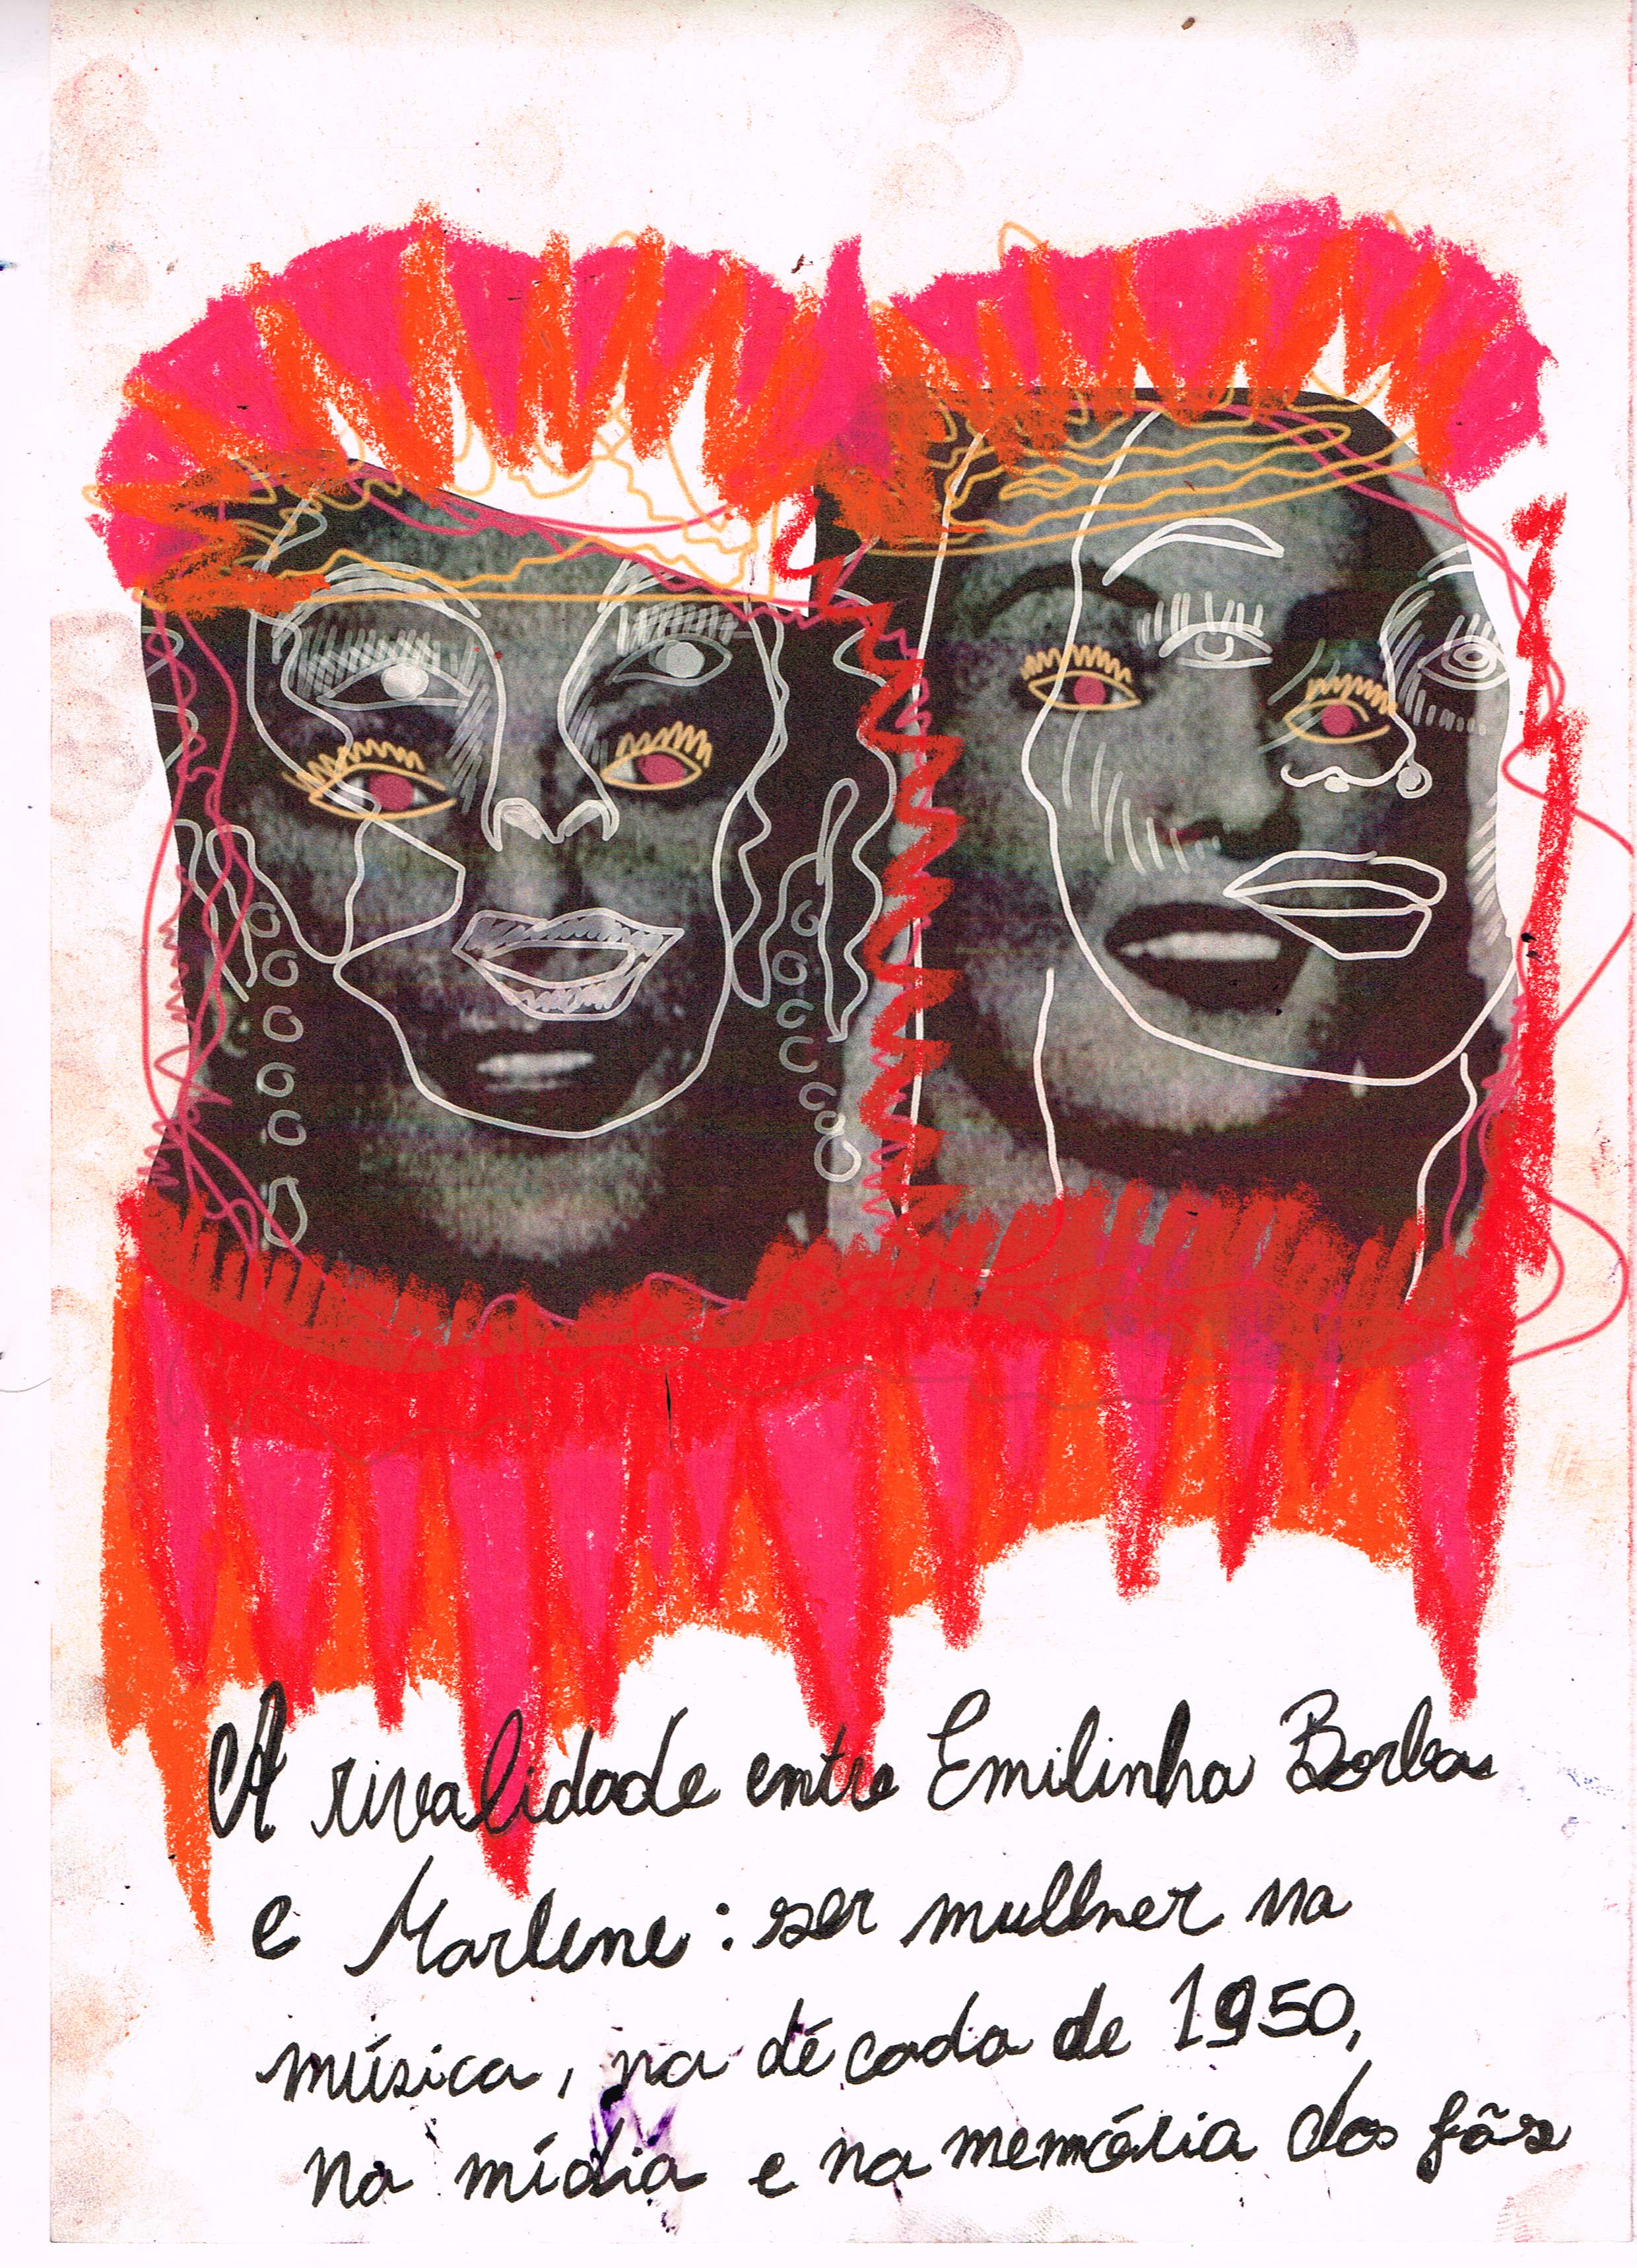 A rivalidade entre Emilinha Borba
e Marlene: ser mulher na
música, na década de 1950,
na mídia e na memória dos fãs